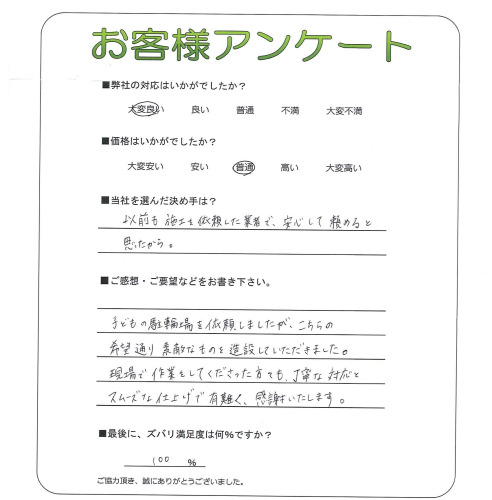 お客様アンケート
■弊社の対応はいかがでしたか？
大変良い 良い 普通 不満 大変不満
■価格はいかがでしたか？
大変安い 安い 普通 高い 大変高い
■当社を選んだ決め手は？
以前も施工を依頼した業者で、安心して頼めると
思ったから。
■ご感想・ご要望などをお書き下さい。
子どもの駐輪場を依頼しましたが、こちらの
希望通り素敵なものを造設していただきました。
現場で作業をしてくださった方ても、丁寧な対応と
スムーズな仕上げで有難く、感謝いたします。
■最後に、ズバリ満足度は何％ですか？
100 ％
ご協力頂き、誠にありがとうございました。